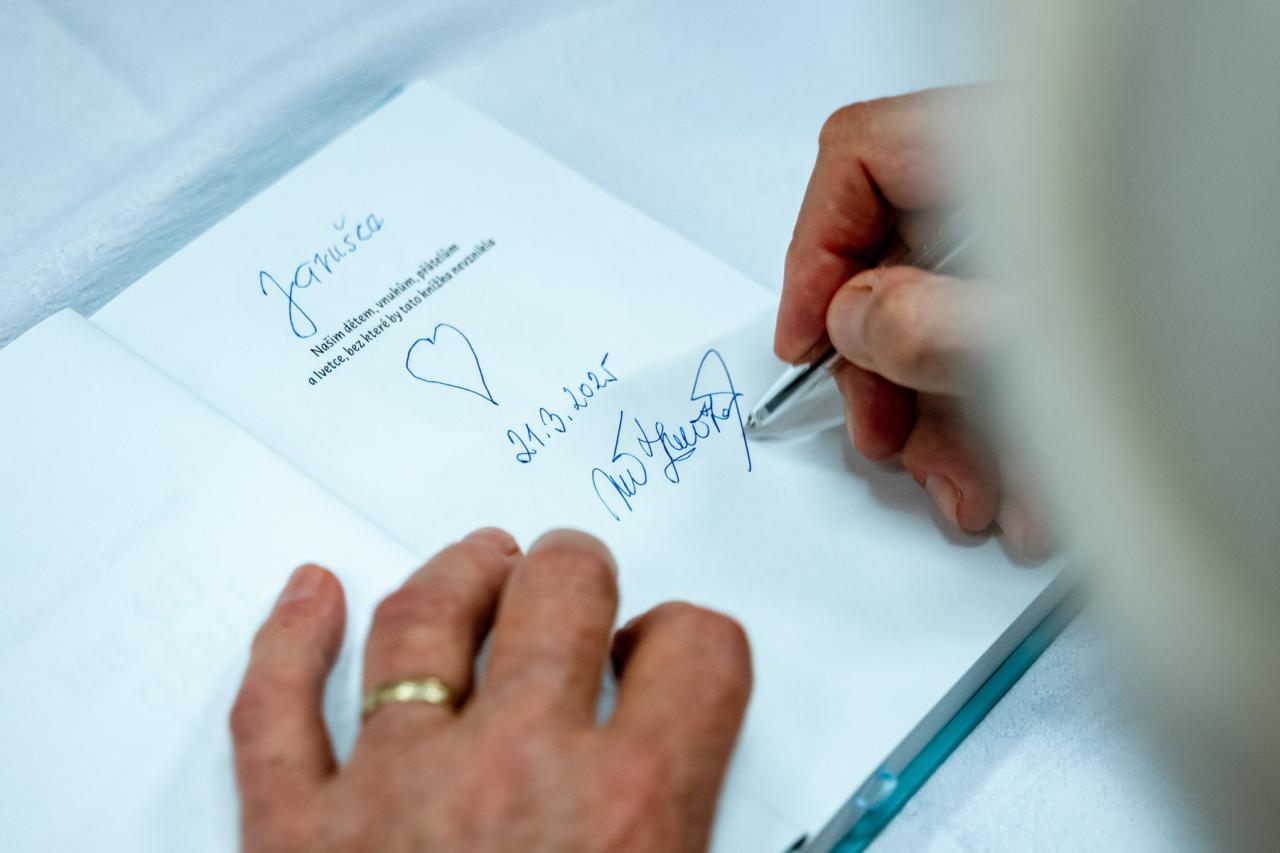 Janušca
Našim dětem, vnuhům, přátelům
a Ivetce, bez které by tato knížka nevznikla
21.3.2025